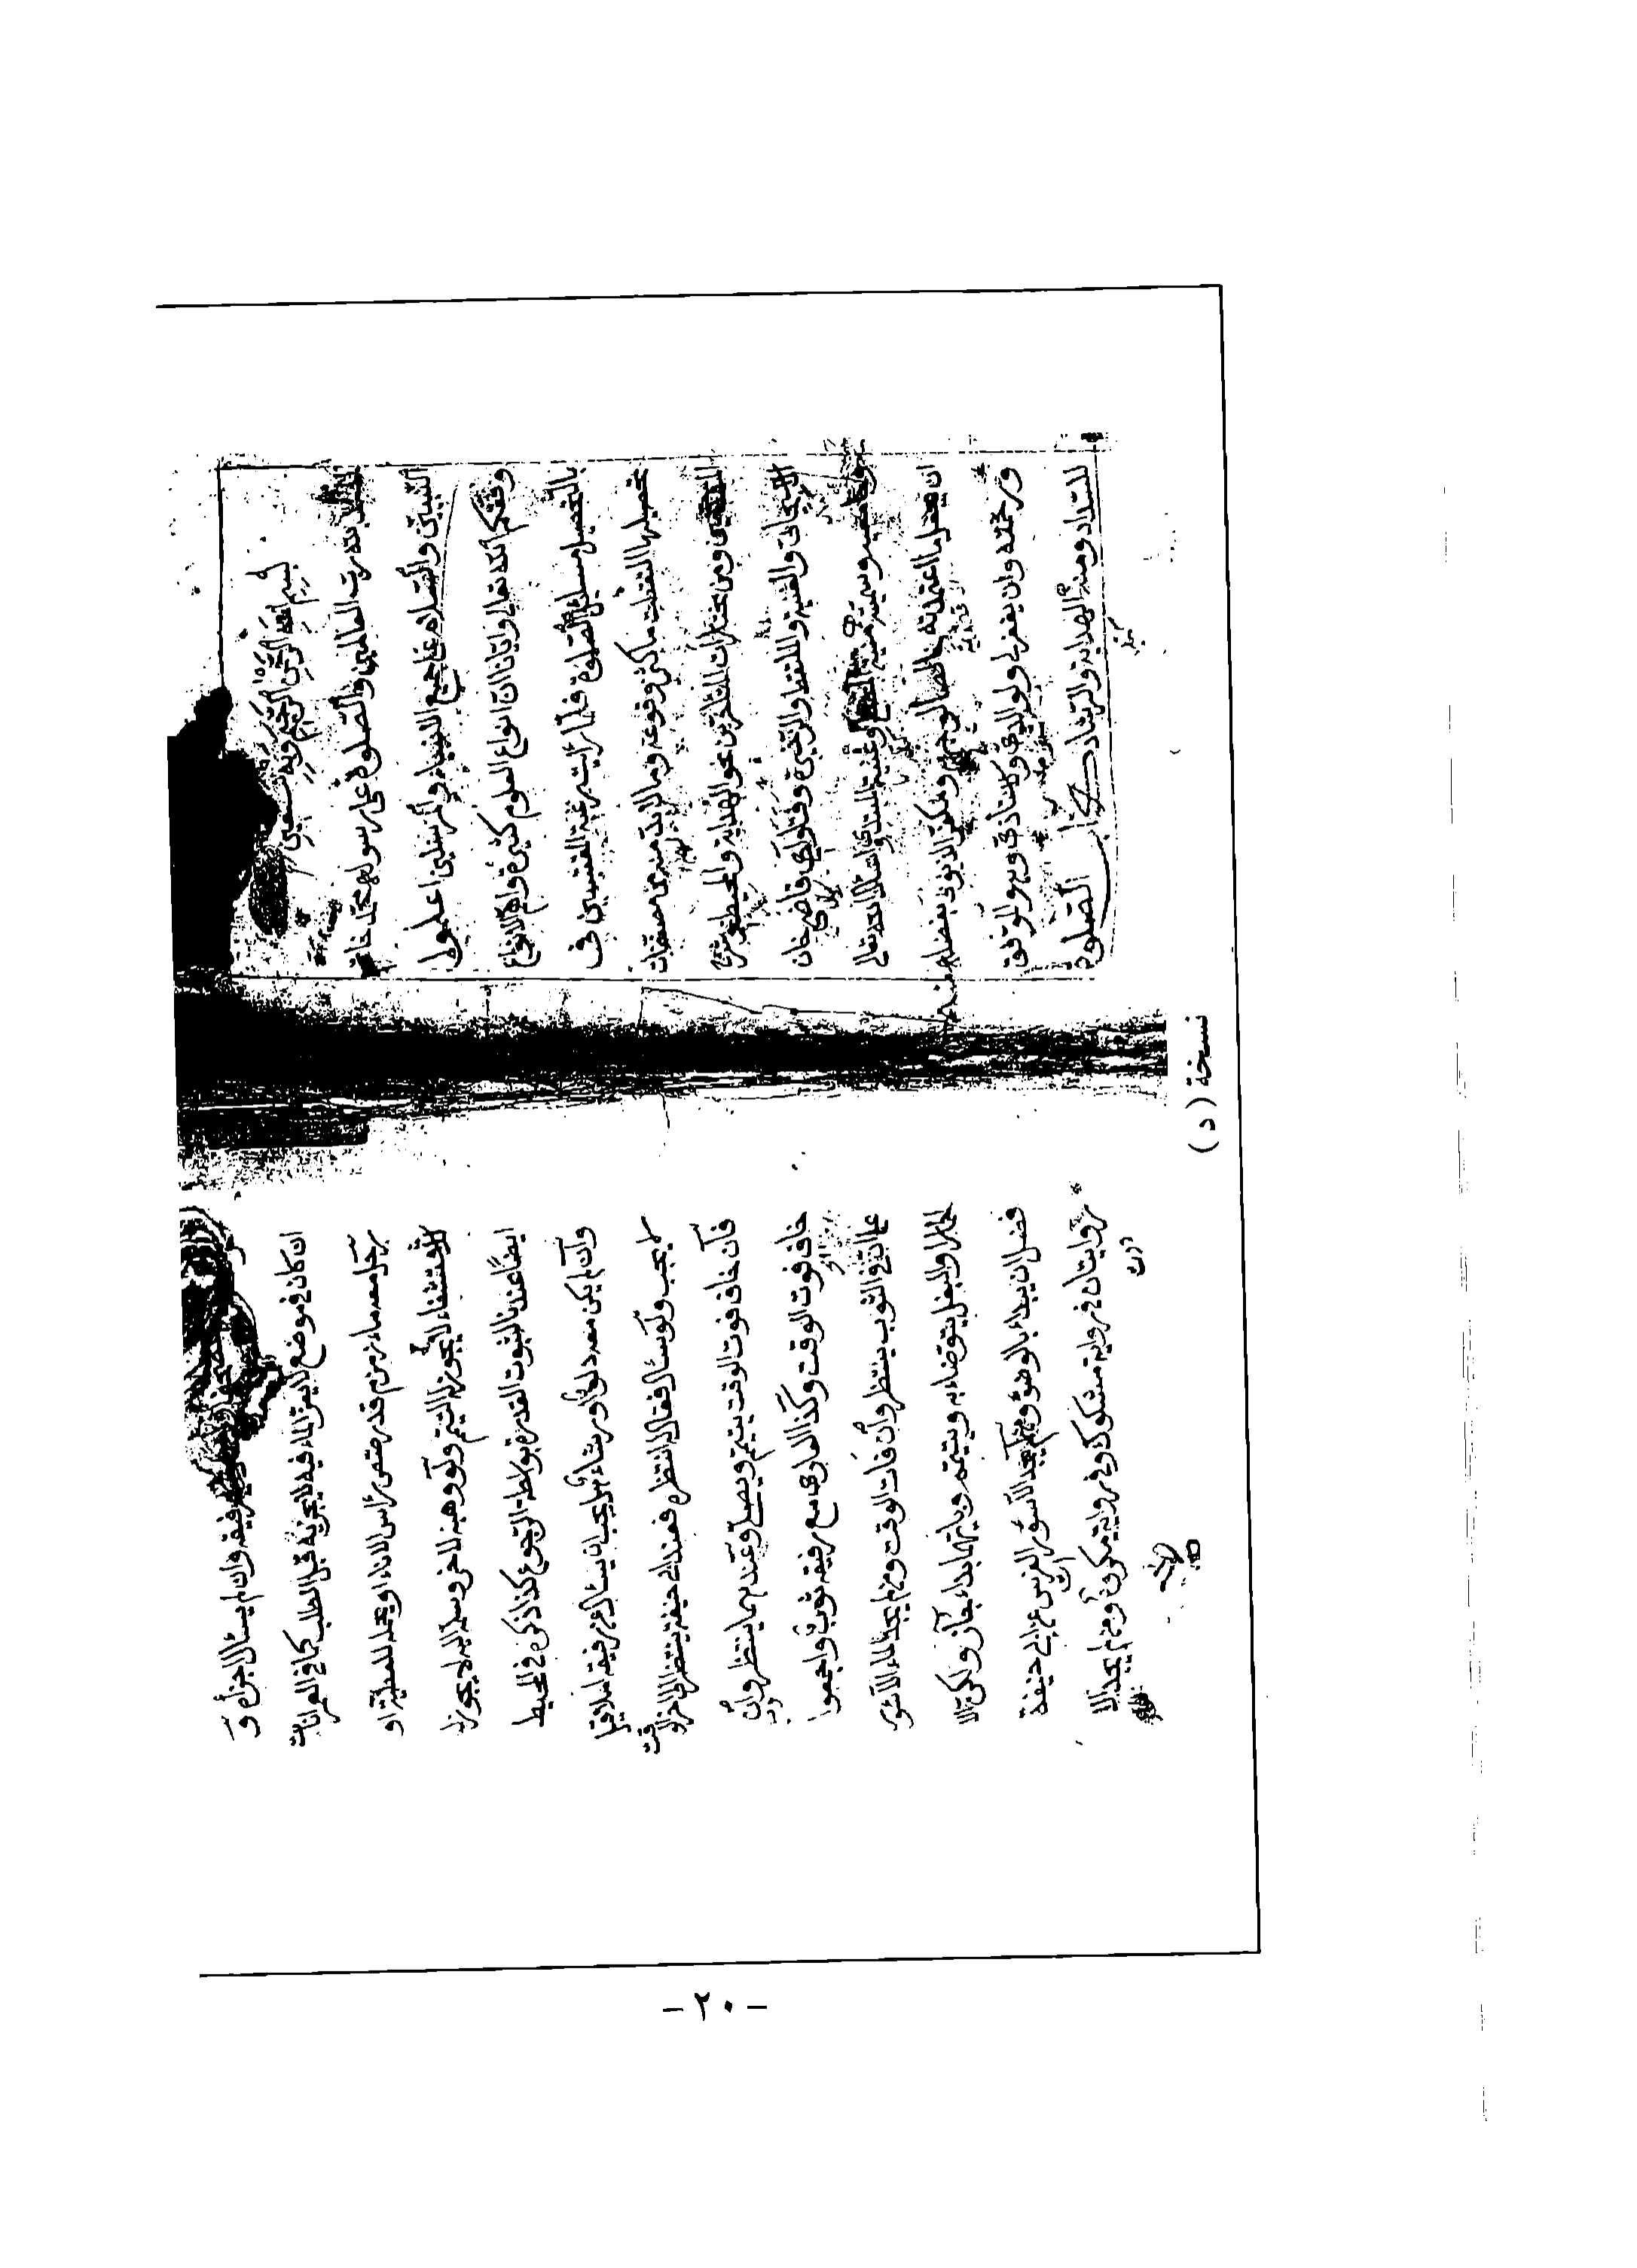 بسم الله الرحمن الرحيم وبه نستعين
الحمد لله رب العالمين والصلوة على رسوله محمد خاتم
النبيين والسلام على جميع الانبياء والمرسلين اعلموا
وفقكم الله تعالى وايانا ان انواع العلوم كثيرة واهم الانواع
بالتحصيل مسائل الصلوة فلما رايت رغبة المقتبسين في
تحصيلها التقطت ما كثر وقوعه وما لا بد منه من مصنفات
المتقدمين ومن مختارات المتأخرين نحو الهداية والمحيط وشرح
الاسبيجابي والغنية والملتقط والذخيرة وفتاوى قاضي خان
وسميته منية المصلي وغنية المبتدي اسئل الله تعالى
ان يجعل ما اعتمدته خالصا لوجهه ومكفرا لذنوبي بفضله منه
ورحمته وان يغفر لي ولوالدي ولاستاذي وهو الموفق
للسداد ومنه الهداية والرشاد كتاب الصلوة
رفيقه وان لم يسئال اجزأه و
ان كان في موضع لا يعز الماء فيه لا يجزيه قبل الطلب كما في العمرانات
رجل معه ماء زمزم قد رصص رأس الاناء او يحمله للعطية او
للاستشفاء لا يجوز له التيمم ولو وهبه لاخر وسلمه اليه لا يجوز له
ايضا عندنا لثبوت القدرة بواسطة الرجوع كذا ذكره في المحيط
وان لم يكن معه دلو او رشاء هل يجب ان يسئال من رفيقه
لا يجب ولو سئال فقال له انتظر فعند ابي حنيفة ينتظر الى اخر الوقت
فان خاف فوت الوقت يتيمم ويصلي وعندهما ينتظر وان
خاف فوت الوقت وكذا العاري مع رفيقه ثوب واجمعوا
على ان في الثوب ينتظر وان فات الوقت ومن لم يجد الماء الا سؤر
الحمار او البغل يتوضاء به ويتيمم وبايهما بداء جاز ولكن الا
فضل ان يبداء بالوضوء ومن لم يجد الا سؤر الفرس عن ابي حنيفة
روايتان في رواية مشكوك وفي رواية مكروه ومن لم يجد الا
نسخة (د)
- ٢٠ -